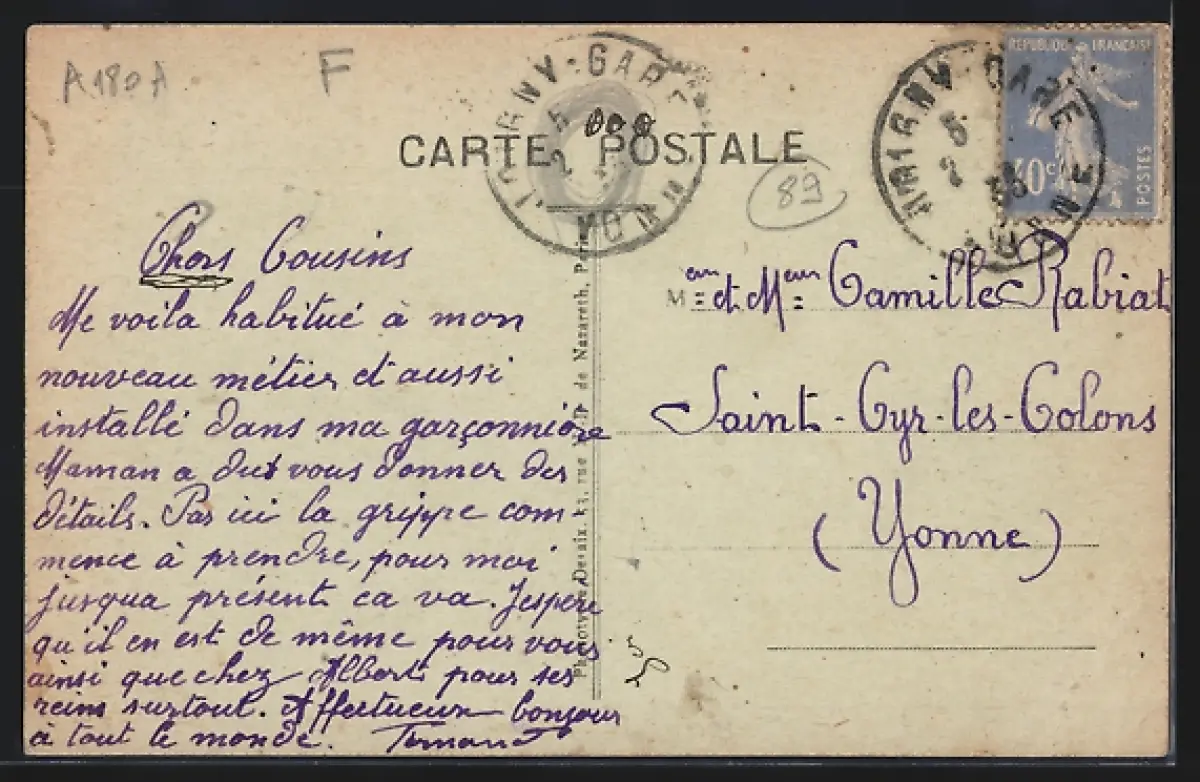 A180A
F
CARTE POSTALE
89
GARE
5
2
YONNE
REPUBLIQUE FRANCAISE
30c
POSTES
Chers Cousins
Me voila habitué à mon
nouveau métier et aussi
installé dans ma garçonnière
Maman a dut vous donner des
détails. Par ici la grippe com-
mence à prendre, pour moi
jusqua présent ca va. Jespère
qu'il en est de même pour vous
ainsi que chez Albert pour ses
reins surtout. Affectueux bonjour
à tout le monde.
de Nazareth,
M eur et Meur Camille Rabiat
Saint-Cyr-les-Colons
(Yonne)